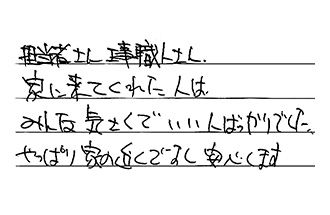 担当者さん 工事職人さん.
家に来てくれた人は
みんな気さくでいい人ばっかりでした
やっぱり家の近くですし安心します